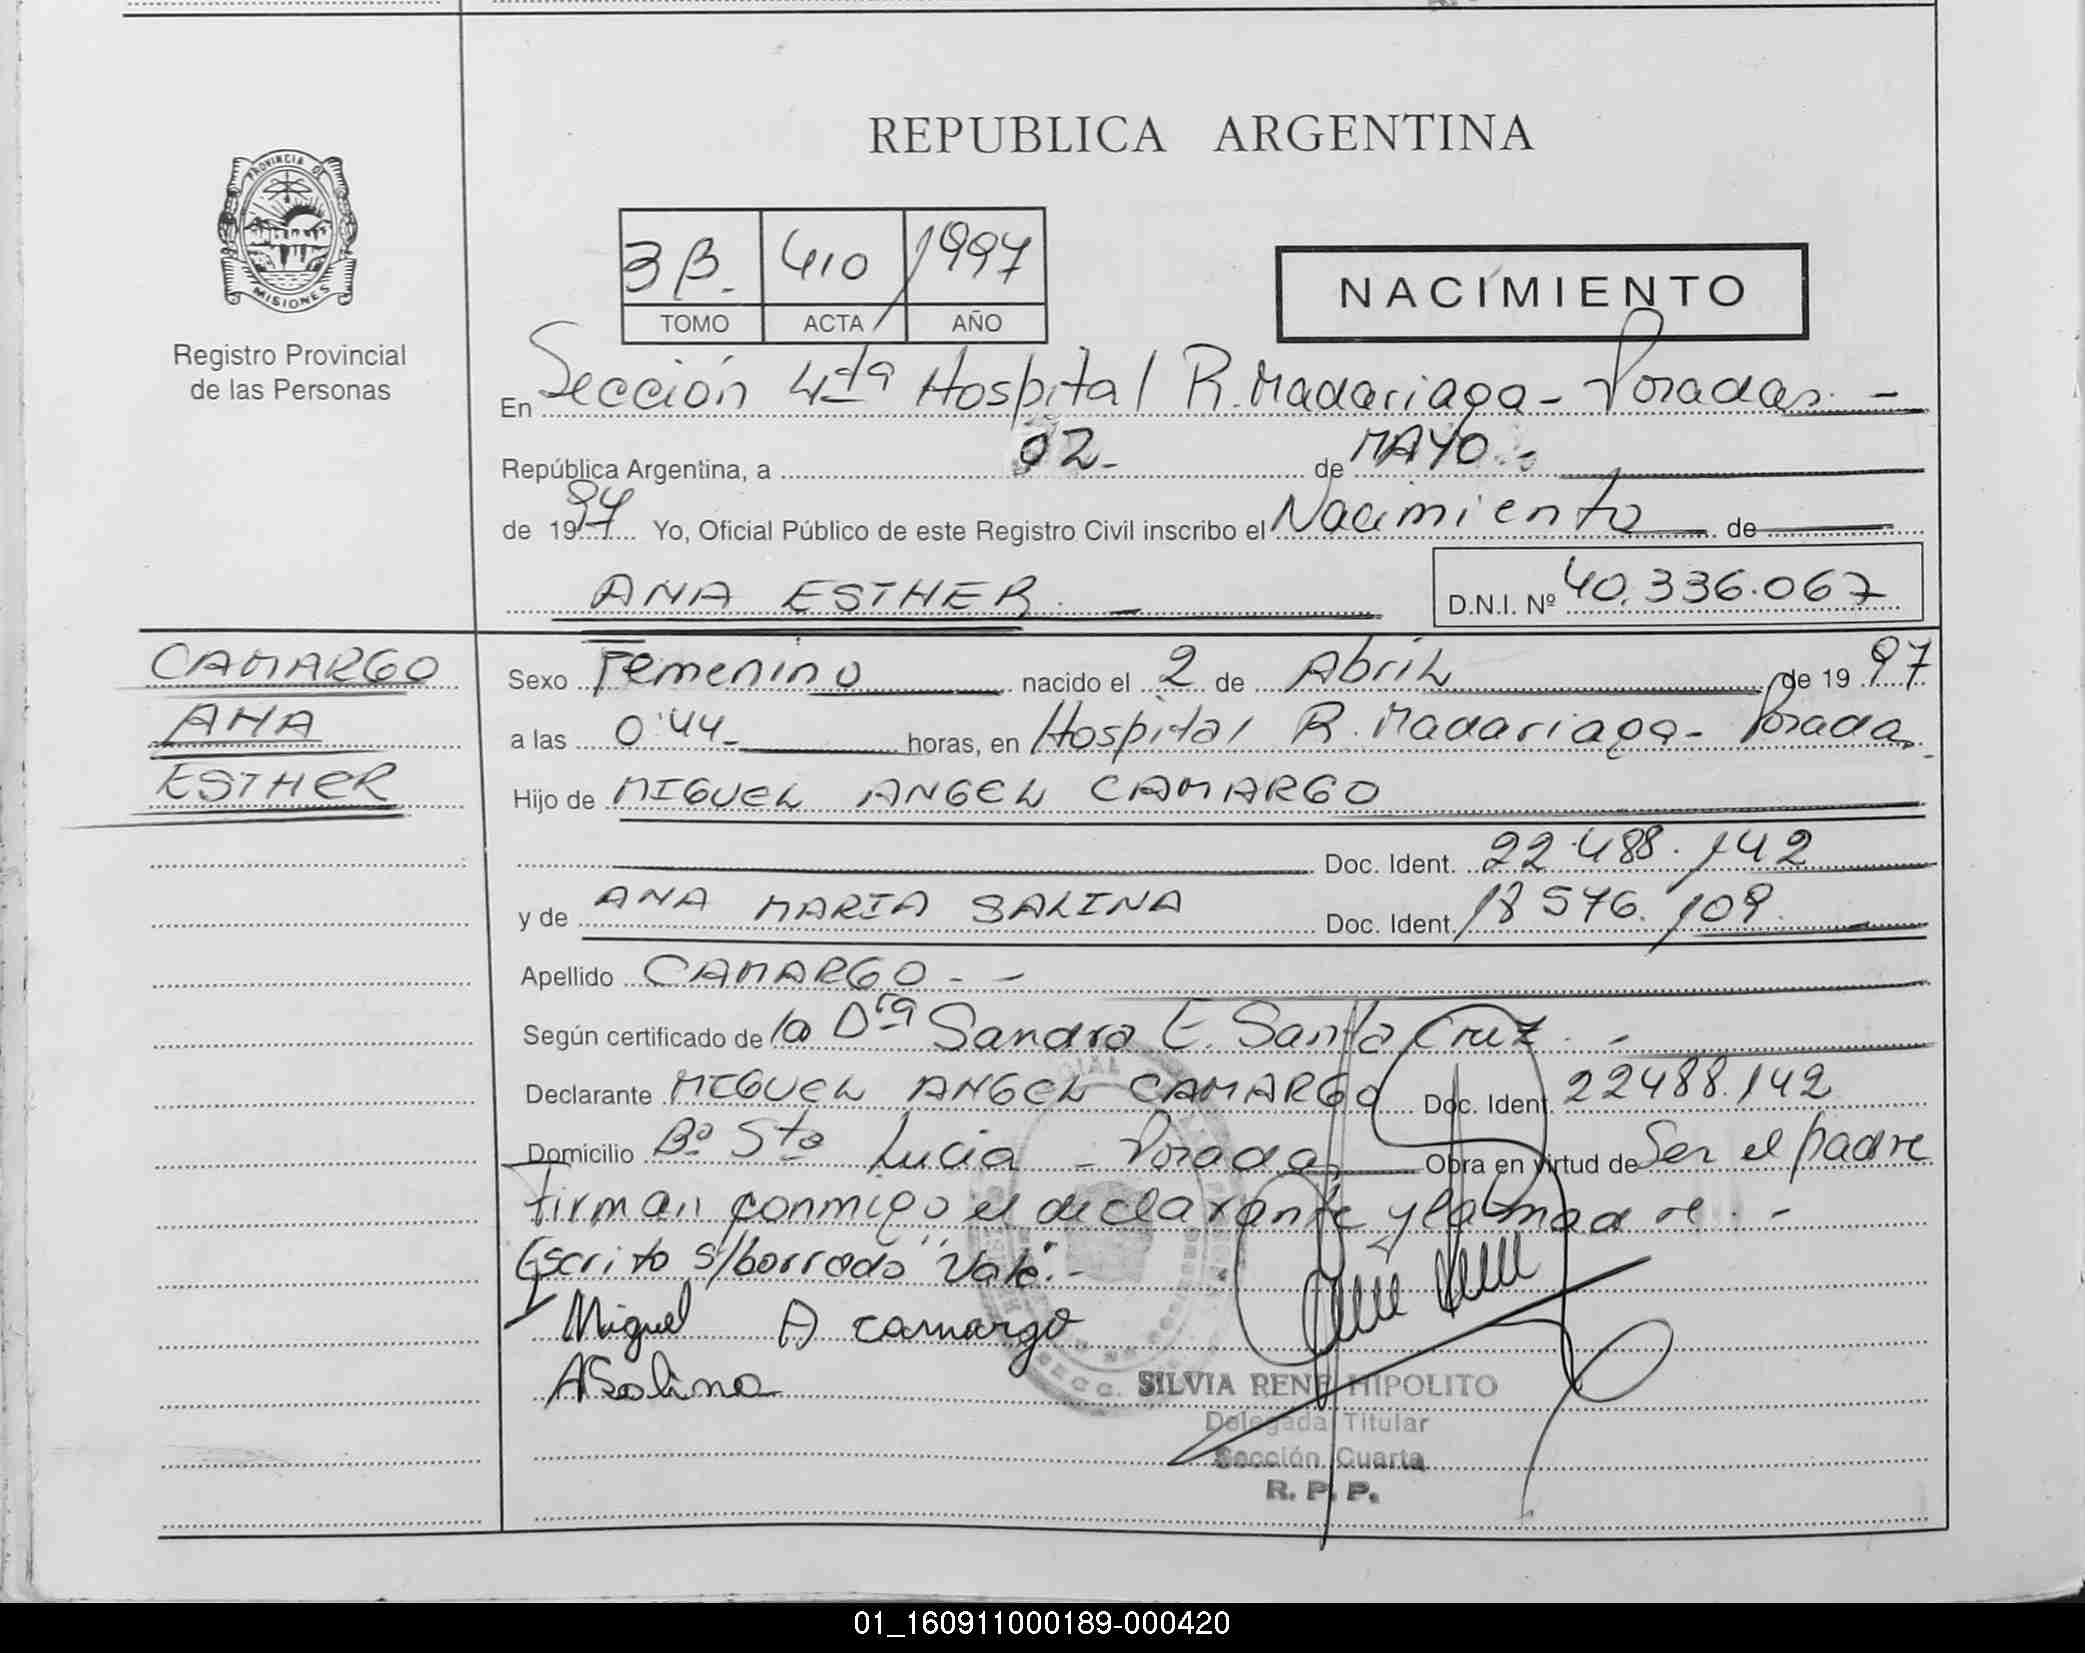 REPUBLICA ARGENTINA
PROVINCIA DE
MISIONES
Registro Provincial
de las Personas
3 B. 410 1997
TOMO ACTA AÑO
NACIMIENTO
En Sección 4ta Hospital R. Madariaga - Posadas. -
República Argentina, a 02- de MAYO. -
de 1997 Yo, Oficial Público de este Registro Civil inscribo el Nacimiento de
ANA ESTHER. - D.N.I. Nº 40.336.067
CAMARGO
ANA
ESTHER
Sexo Femenino nacido el 2 de Abril de 19 97
a las 0:44- horas, en Hospital R. Madariaga - Posadas.
Hijo de MIGUEL ANGEL CAMARGO
Doc. Ident. 22.488.142
y de ANA MARIA SALINA Doc. Ident. 18 576.109.
Apellido CAMARGO - -
Según certificado de la Dra Sandra E. Santa Cruz. -
Declarante MIGUEL ANGEL CAMARGO Doc. Ident. 22488.142
Domicilio Bº Sta Lucia - Posadas Obra en virtud de Ser el padre
Firman conmigo el declarante y la madre. -
Escrito s/borrado "Vale". -
Miguel A camargo
ASalina
SECC.
SILVIA RENE HIPOLITO
Delegada Titular
Sección Cuarta
R. P. P.
01_160911000189-000420